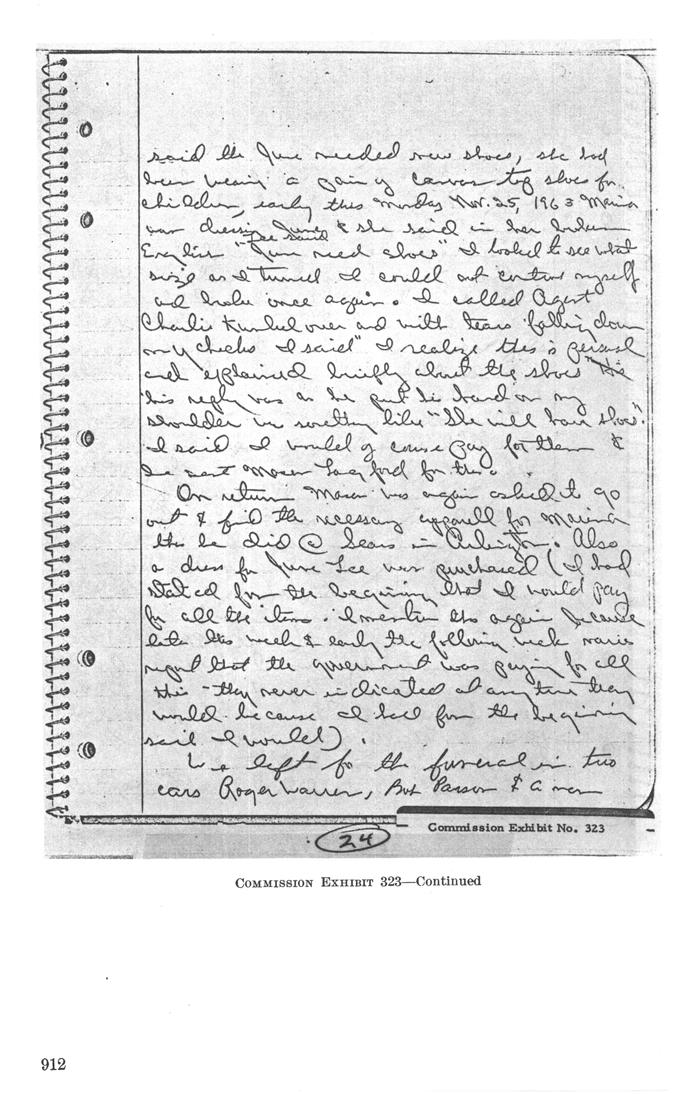 said the June needed new shoes, she had
been wearing a pair of canvas top shoes for
children, early this Monday Nov. 25, 1963 Marina
was dressing June & she said in her broken
Lee said
English "Jun need shoes" I looked to see what
size as I turned I could not control myself
and broke once again. I called Agent
Charlie Kunkel over and with tears falling down
my cheeks I said "I realize this is personal
and explained briefly about the shoes"
his reply was as he put his hand on my
shoulder was something like "She will have shoes".
I said I would of course pay for them &
he sent Mason Langford for this.
On return Mason was again asked to go
out & find the necessary apparell for Marina
this he did @ Sears in Arlington. Also
a dress for June Lee was purchased (I had
stated from the beginning that I would pay
for all the items. I mention this again because
late this week & early the following week
report that the government was paying for all
this - they never indicated at any time they
would because I had from the beginning
said I would).
We left for the funeral in two
cars Roger Warner, Bob Parson & a man
24
Commission Exhibit No. 323
COMMISSION EXHIBIT 323—Continued
912